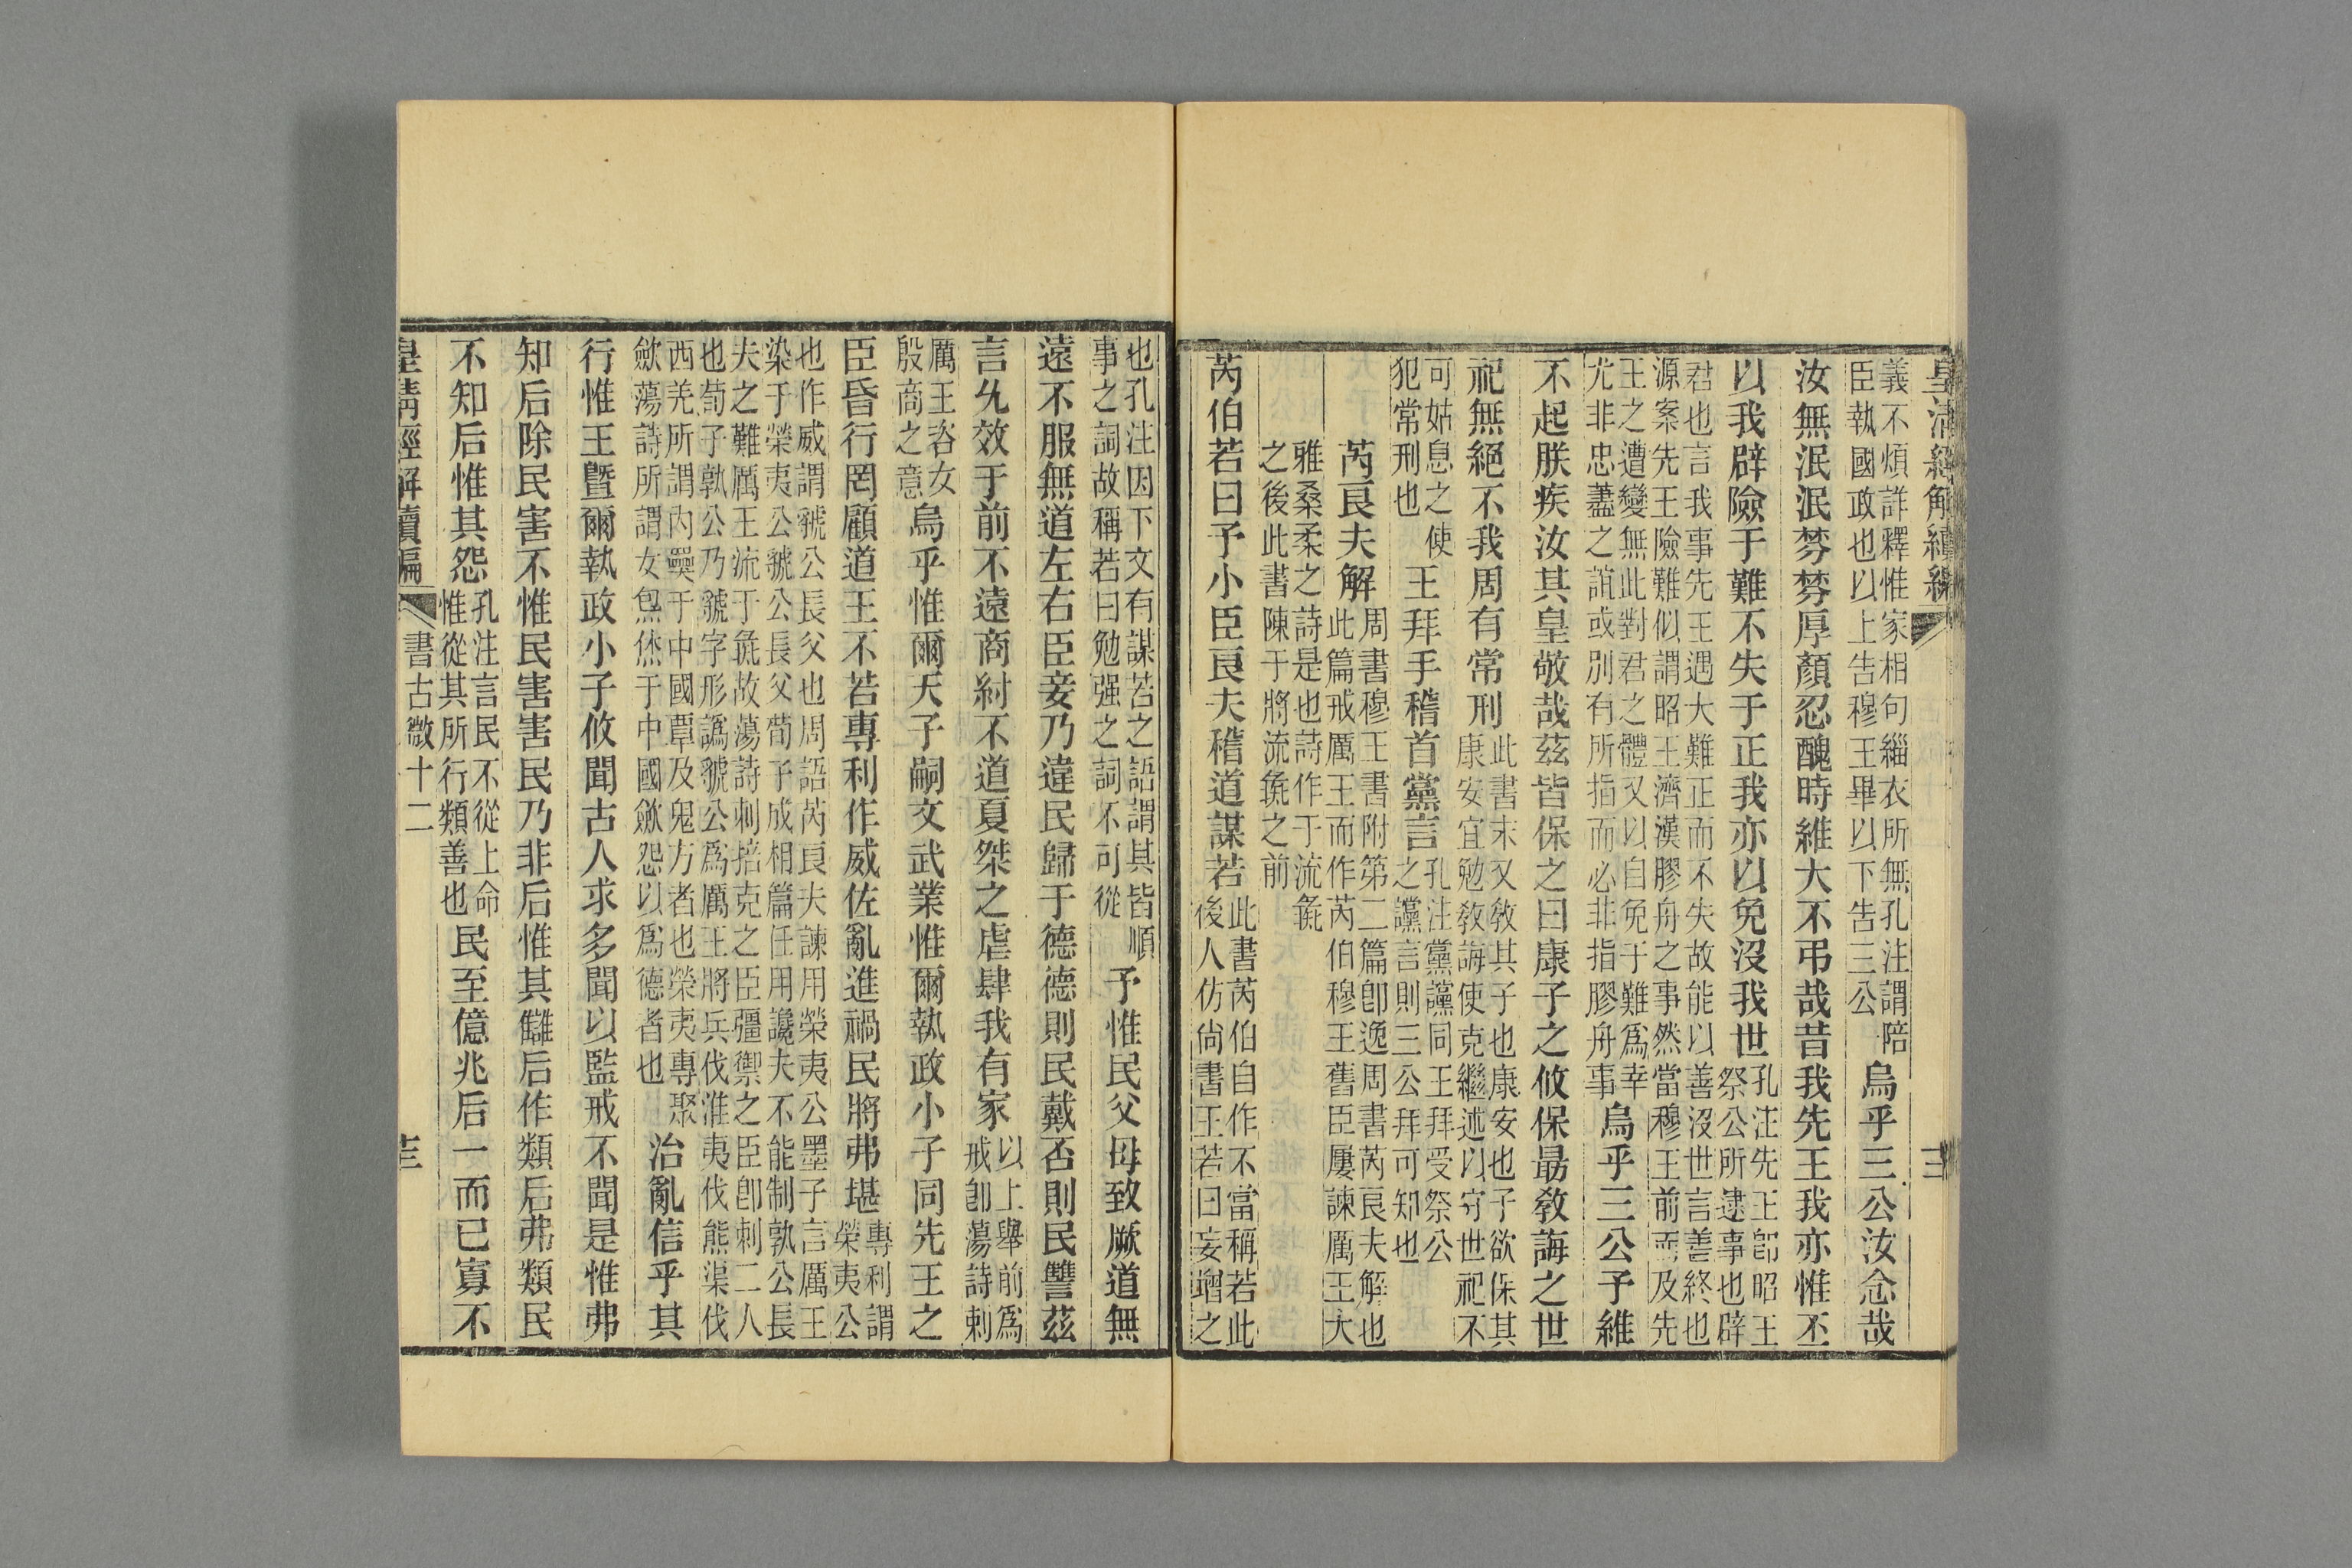 皇清經解續編
三
義不煩詳釋惟家相句緇衣所無孔注謂陪
臣執國政也以上告穆王畢以下告三公
烏乎三公汝念哉
汝無泯泯棼棼厚顏忍醜時維大不弔哉昔我先王我亦惟丕
以我辟險于難不失于正我亦以免沒我世
孔注先王卽昭王
祭公所逮事也辟
君也言我事先王遇大難正而不失故能以善沒世言善終也
源案先王險難似謂昭王濟漢膠舟之事然當穆王前而及先
王之遭變無此對君之體又以自免于難爲幸
尤非忠藎之誼或別有所指而必非指膠舟事
烏乎三公予維
不起朕疾汝其皇敬哉茲皆保之曰康子之攸保勗敎誨之世
祀無絕不我周有常刑
此書末又敎其子也康安也子欲保其
康安宜勉敎誨使克繼述以守世祀不
可姑息之使
犯常刑也
王拜手稽首黨言
孔注黨讜同王拜受祭公
之讜言則三公拜可知也
芮良夫解
周書穆王書附第二篇卽逸周書芮良夫解也
此篇戒厲王而作芮伯穆王舊臣屢諫厲王大
雅桑柔之詩是也詩作于流彘
之後此書陳于將流彘之前
芮伯若曰予小臣良夫稽道謀若
此書芮伯自作不當稱若此
後人仿尙書王若曰妄增之
也孔注因下文有謀若之語謂其皆順
事之詞故稱若曰勉强之詞不可從
予惟民父母致厥道無
遠不服無道左右臣妾乃違民歸于德德則民戴否則民讐茲
言允效于前不遠商紂不道夏桀之虐肆我有家
以上舉前爲
戒卽蕩詩刺
厲王咨女
殷商之意
烏乎惟爾天子嗣文武業惟爾執政小子同先王之
臣昏行罔顧道王不若專利作威佐亂進禍民將弗堪
專利謂
榮夷公
也作威謂虢公長父也周語芮良夫諫用榮夷公墨子言厲王
染于榮夷公虢公長父荀子成相篇任用讒夫不能制孰公長
夫之難厲王流于彘故蕩詩刺掊克之臣彊禦之臣卽刺二人
也荀子孰公乃虢字形譌虢公爲厲王將兵伐淮夷伐熊渠伐
西羌所謂內奰于中國覃及鬼方者也榮夷專聚
歛蕩詩所謂女炰烋于中國歛怨以爲德者也
治亂信乎其
行惟王曁爾執政小子攸聞古人求多聞以監戒不聞是惟弗
知后除民害不惟民害害民乃非后惟其讎后作類后弗類民
不知后惟其怨
孔注言民不從上命
惟從其所行類善也
民至億兆后一而已寡不
皇清經解續編
書古微十二